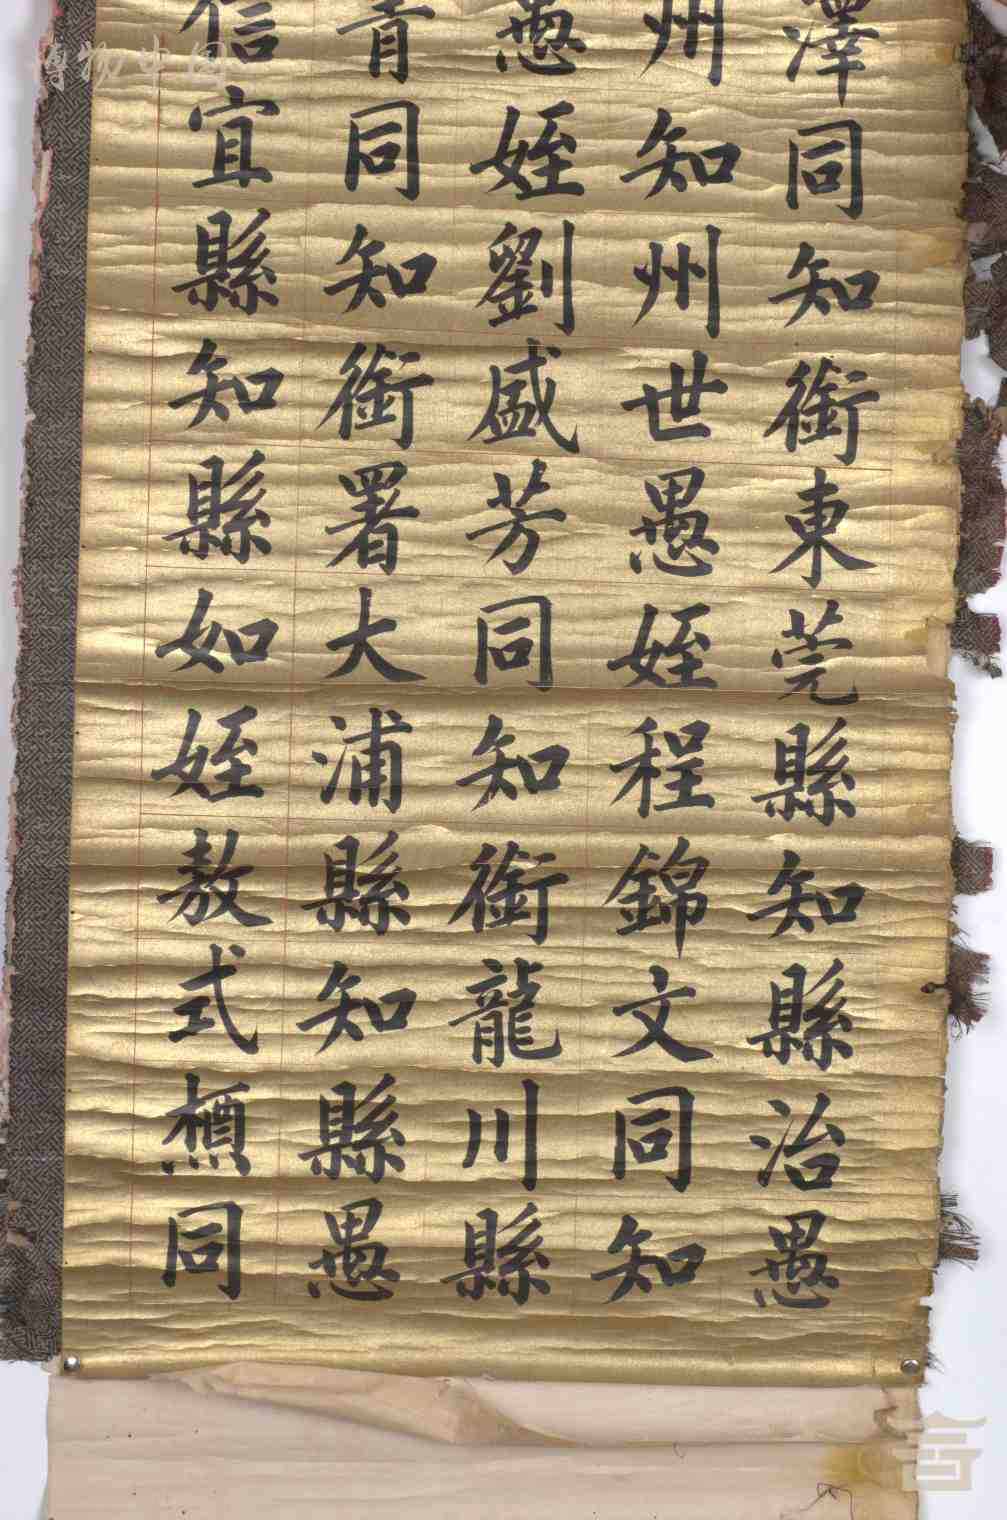 澤同知銜東莞縣知縣治愚
州知州世愚姪程錦文同知
愚姪劉盛芳同知銜龍川縣
青同知銜署大浦縣知縣愚
信宜縣知縣如姪敖式槱同
博物中国